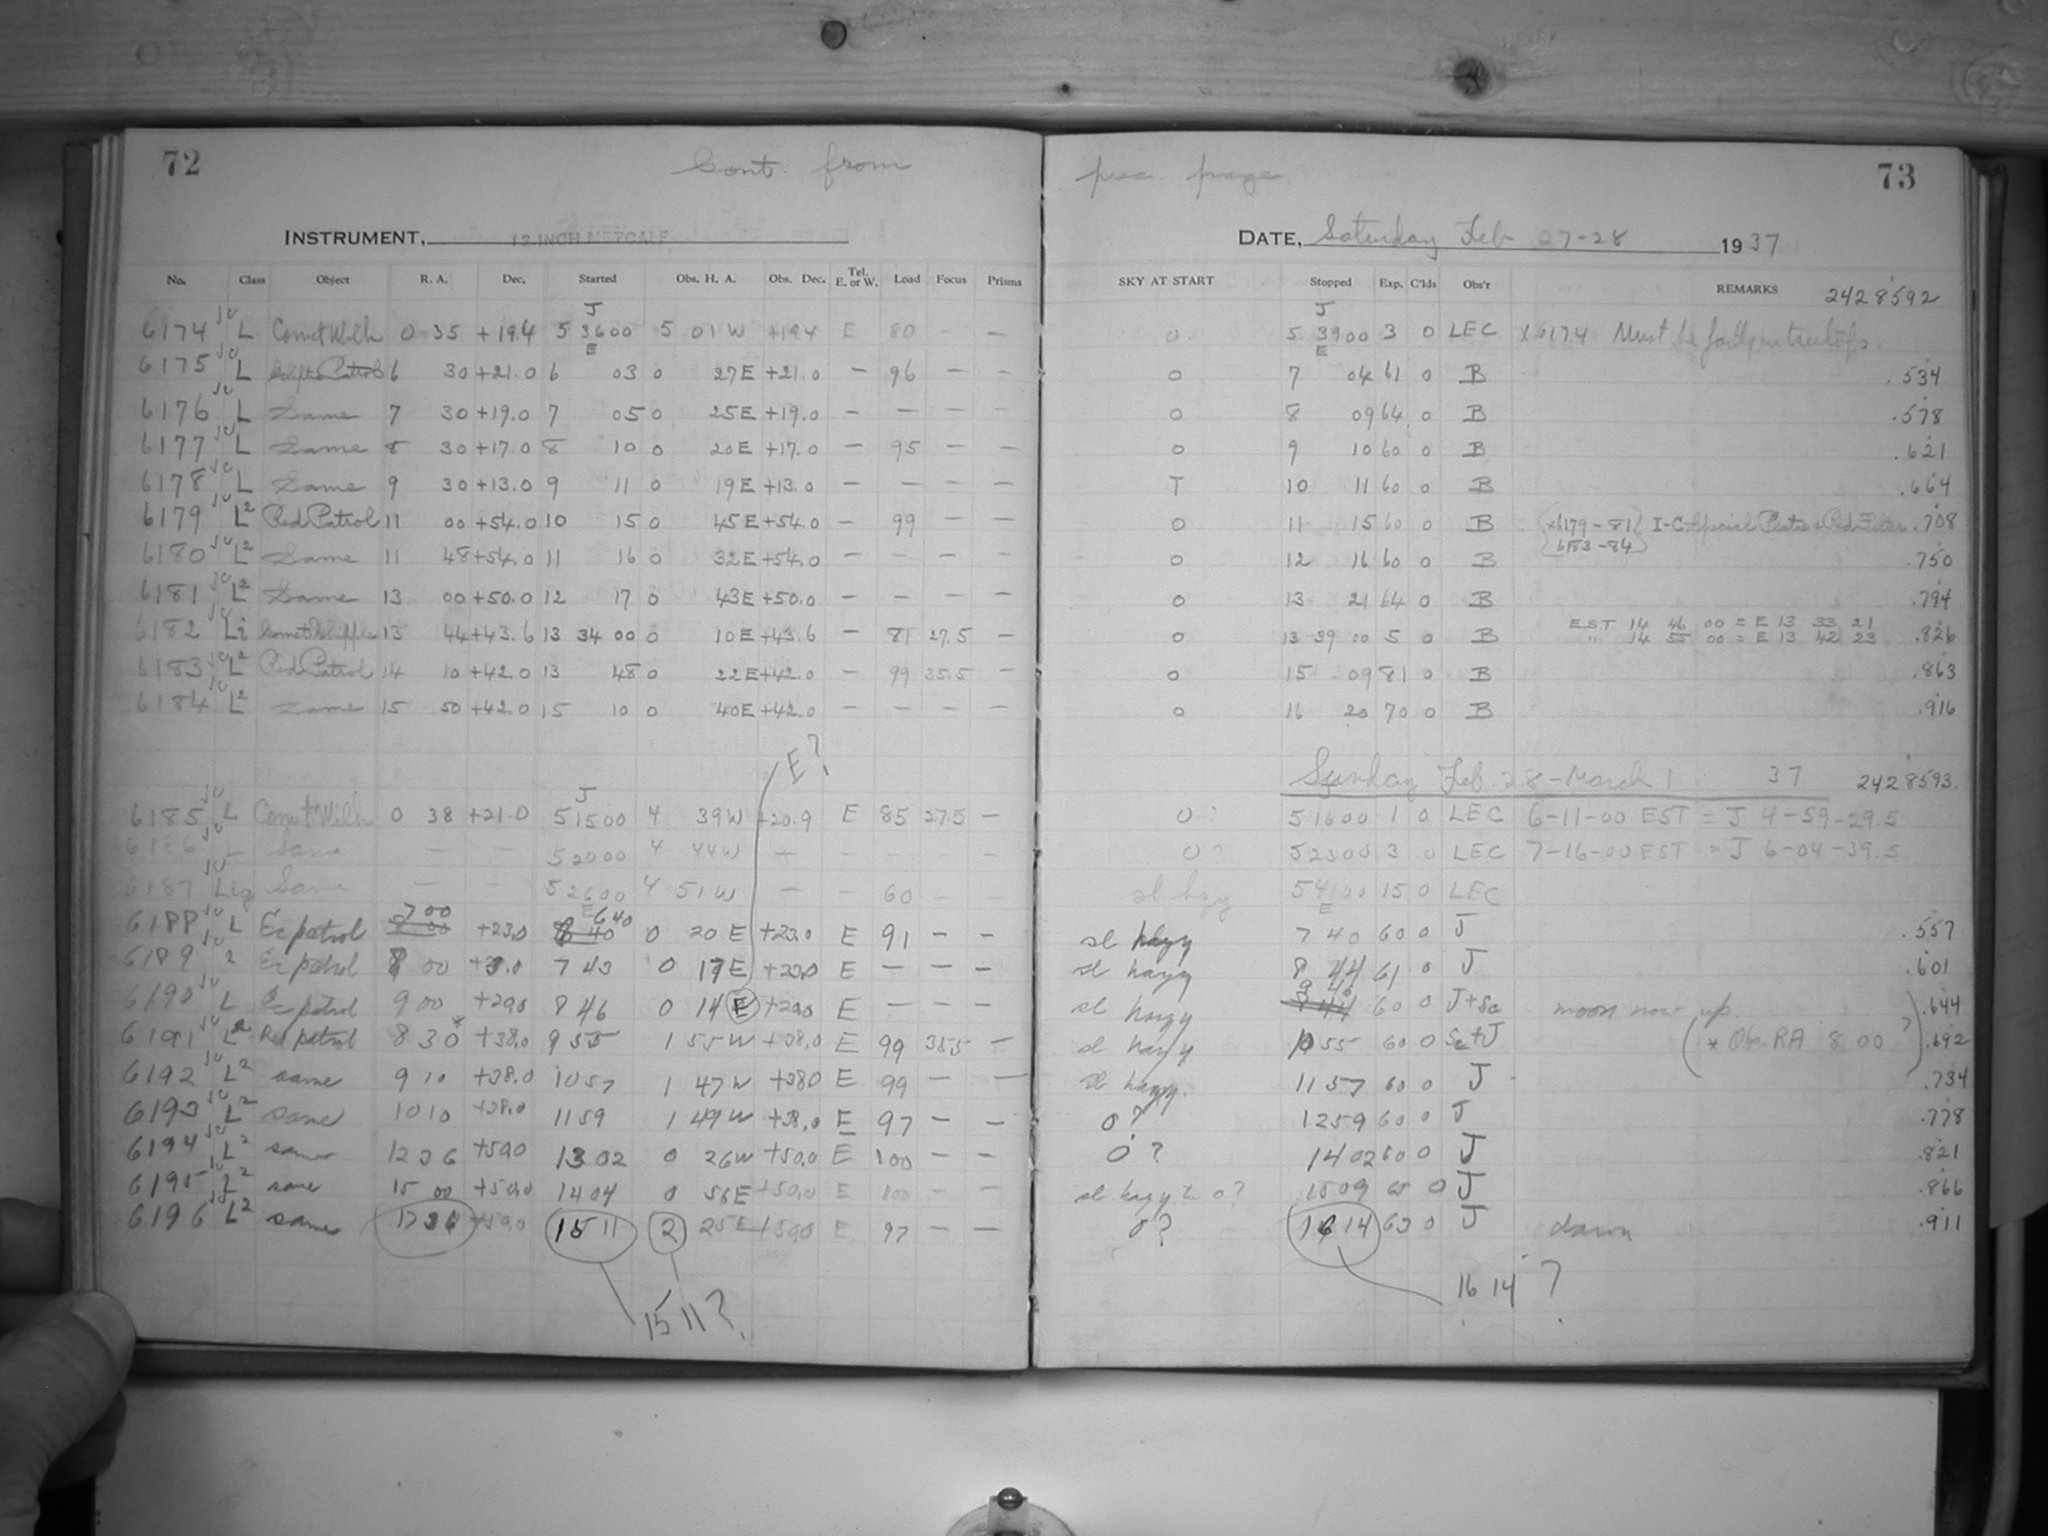 72
Cont. from prec. page
73
INSTRUMENT, 12 INCH METCALF
DATE, Saturday Feb 27-28 1937
No. Class Object R. A. Dec. Started Obs. H. A. Obs. Dec. Tel. E. or W. Load Focus Prisms SKY AT START Stopped Exp. C'lds Obs'r REMARKS 2428592
J J
6174 L Comet Wilk 0 35 +19.4 5 36 00 5 01 W +19.4 E 80 - - 0 5 39 00 3 0 LEC X6174 Must be
E E
6175 L 6 30 +21.0 6 03 0 27E +21.0 - 96 - - 0 7 04 61 0 B .534
6176 L Same 7 30 +19.0 7 05 0 25E +19.0 - - - - 0 8 09 64 0 B .578
6177 L Same 8 30 +17.0 8 10 0 20E +17.0 - 95 - - 0 9 10 60 0 B .621
6178 L Same 9 30 +13.0 9 11 0 19E +13.0 - - - - T 10 11 60 0 B .664
6179 L2 Red Patrol 11 00 +54.0 10 15 0 45E +54.0 - 99 - - 0 11 15 60 0 B x6179-81 I-C Special Plates + Red Filter .708
6183-84
6180 L2 Same 11 48 +54.0 11 16 0 32E +54.0 - - - - 0 12 16 60 0 B .750
6181 L2 Same 13 00 +50.0 12 17 0 43E +50.0 - - - - 0 13 21 64 0 B .794
EST 14 46 00 = E 13 33 21
6182 Li 13 44 +43.6 13 34 00 0 10E +43.6 - 81 27.5 - 0 13 39 00 5 0 B " 14 55 00 = E 13 42 23 .826
6183 L2 Red Patrol 14 10 +42.0 13 48 0 22E +42.0 - 99 35.5 - 0 15 09 81 0 B .863
6184 L2 Same 15 50 +42.0 15 10 0 40E +42.0 - - - - 0 16 20 70 0 B .916
E?
Sunday Feb 28 - March 1 37 2428593.
J
6185 L Comet Wilk 0 38 +21.0 5 15 00 4 39W +20.9 E 85 27.5 - 0? 5 16 00 1 0 LEC 6-11-00 EST = J 4-59-29.5
6186 L Same - - 5 20 00 4 44W - - - - - 0? 5 23 00 3 0 LEC 7-16-00 EST = J 6-04-39.5
6187 Lig Same - - 5 26 00 4 51W - - 60 - - sl hzy 5 41 00 15 0 LEC
700 E 640 E
6188 L Ec patrol 8 00 +23.0 8 40 0 20 E +23.0 E 91 - - sl hazy 7 40 60 0 J .557
6189 Ec patrol 8 00 7 43 0 17E E - - - sl hazy 8 44 61 0 J .601
9 46
6190 L Ec patrol 9 00 +20.0 8 46 0 14 E +20.0 E - - - sl hazy 8 44 60 0 J+Sc moon now up .644
6191 L2 Red patrol 8 30* +38.0 9 55 1 55 W +38.0 E 99 355 - sl hazy 10 55 60 0 Sc+J (* Obs. RA 8 00?) .692
6192 L2 same 9 10 +38.0 10 57 1 47 W +380 E 99 - - sl hazy. 11 57 60 0 J .734
6193 L2 same 10 10 +38.0 11 59 1 49 W +38.0 E 97 - - 0? 12 59 60 0 J .778
6194 L2 same 12 36 +50.0 13 02 0 26W +50.0 E 100 - - 0? 14 02 60 0 J .821
6195 L2 same 15 00 +50.0 14 04 0 56E +50.0 E 100 - - sl hazy to 0? 15 09 65 0 J .866
6196 L2 same 17 36 +50.0 15 11 2 25E +50.0 E 97 - - 0? 16 14 63 0 J dawn .911
15 11?
16 14?